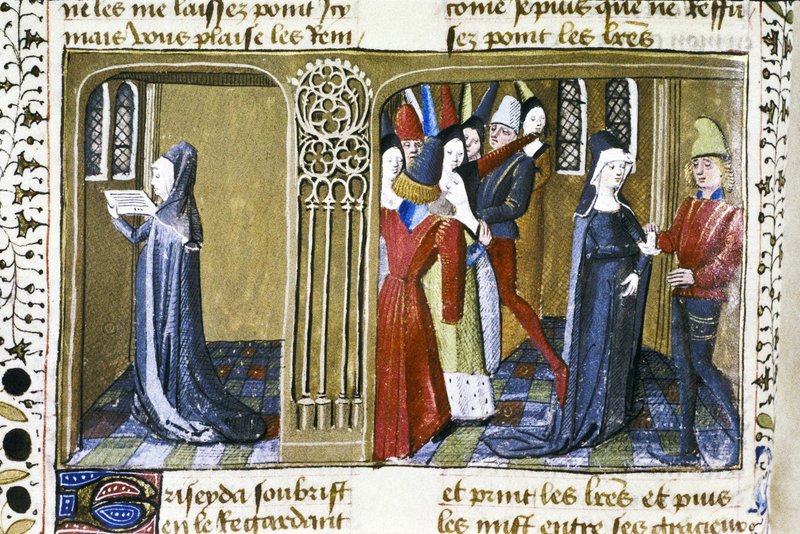 ne les me laissez point Icy
mais vous plaise les Rem
come se puis que ne Reffu
sez point les lrēs
riseyda soubrist
en le Regardant
et print les lrēs et puis
les mist entre ses gracieux